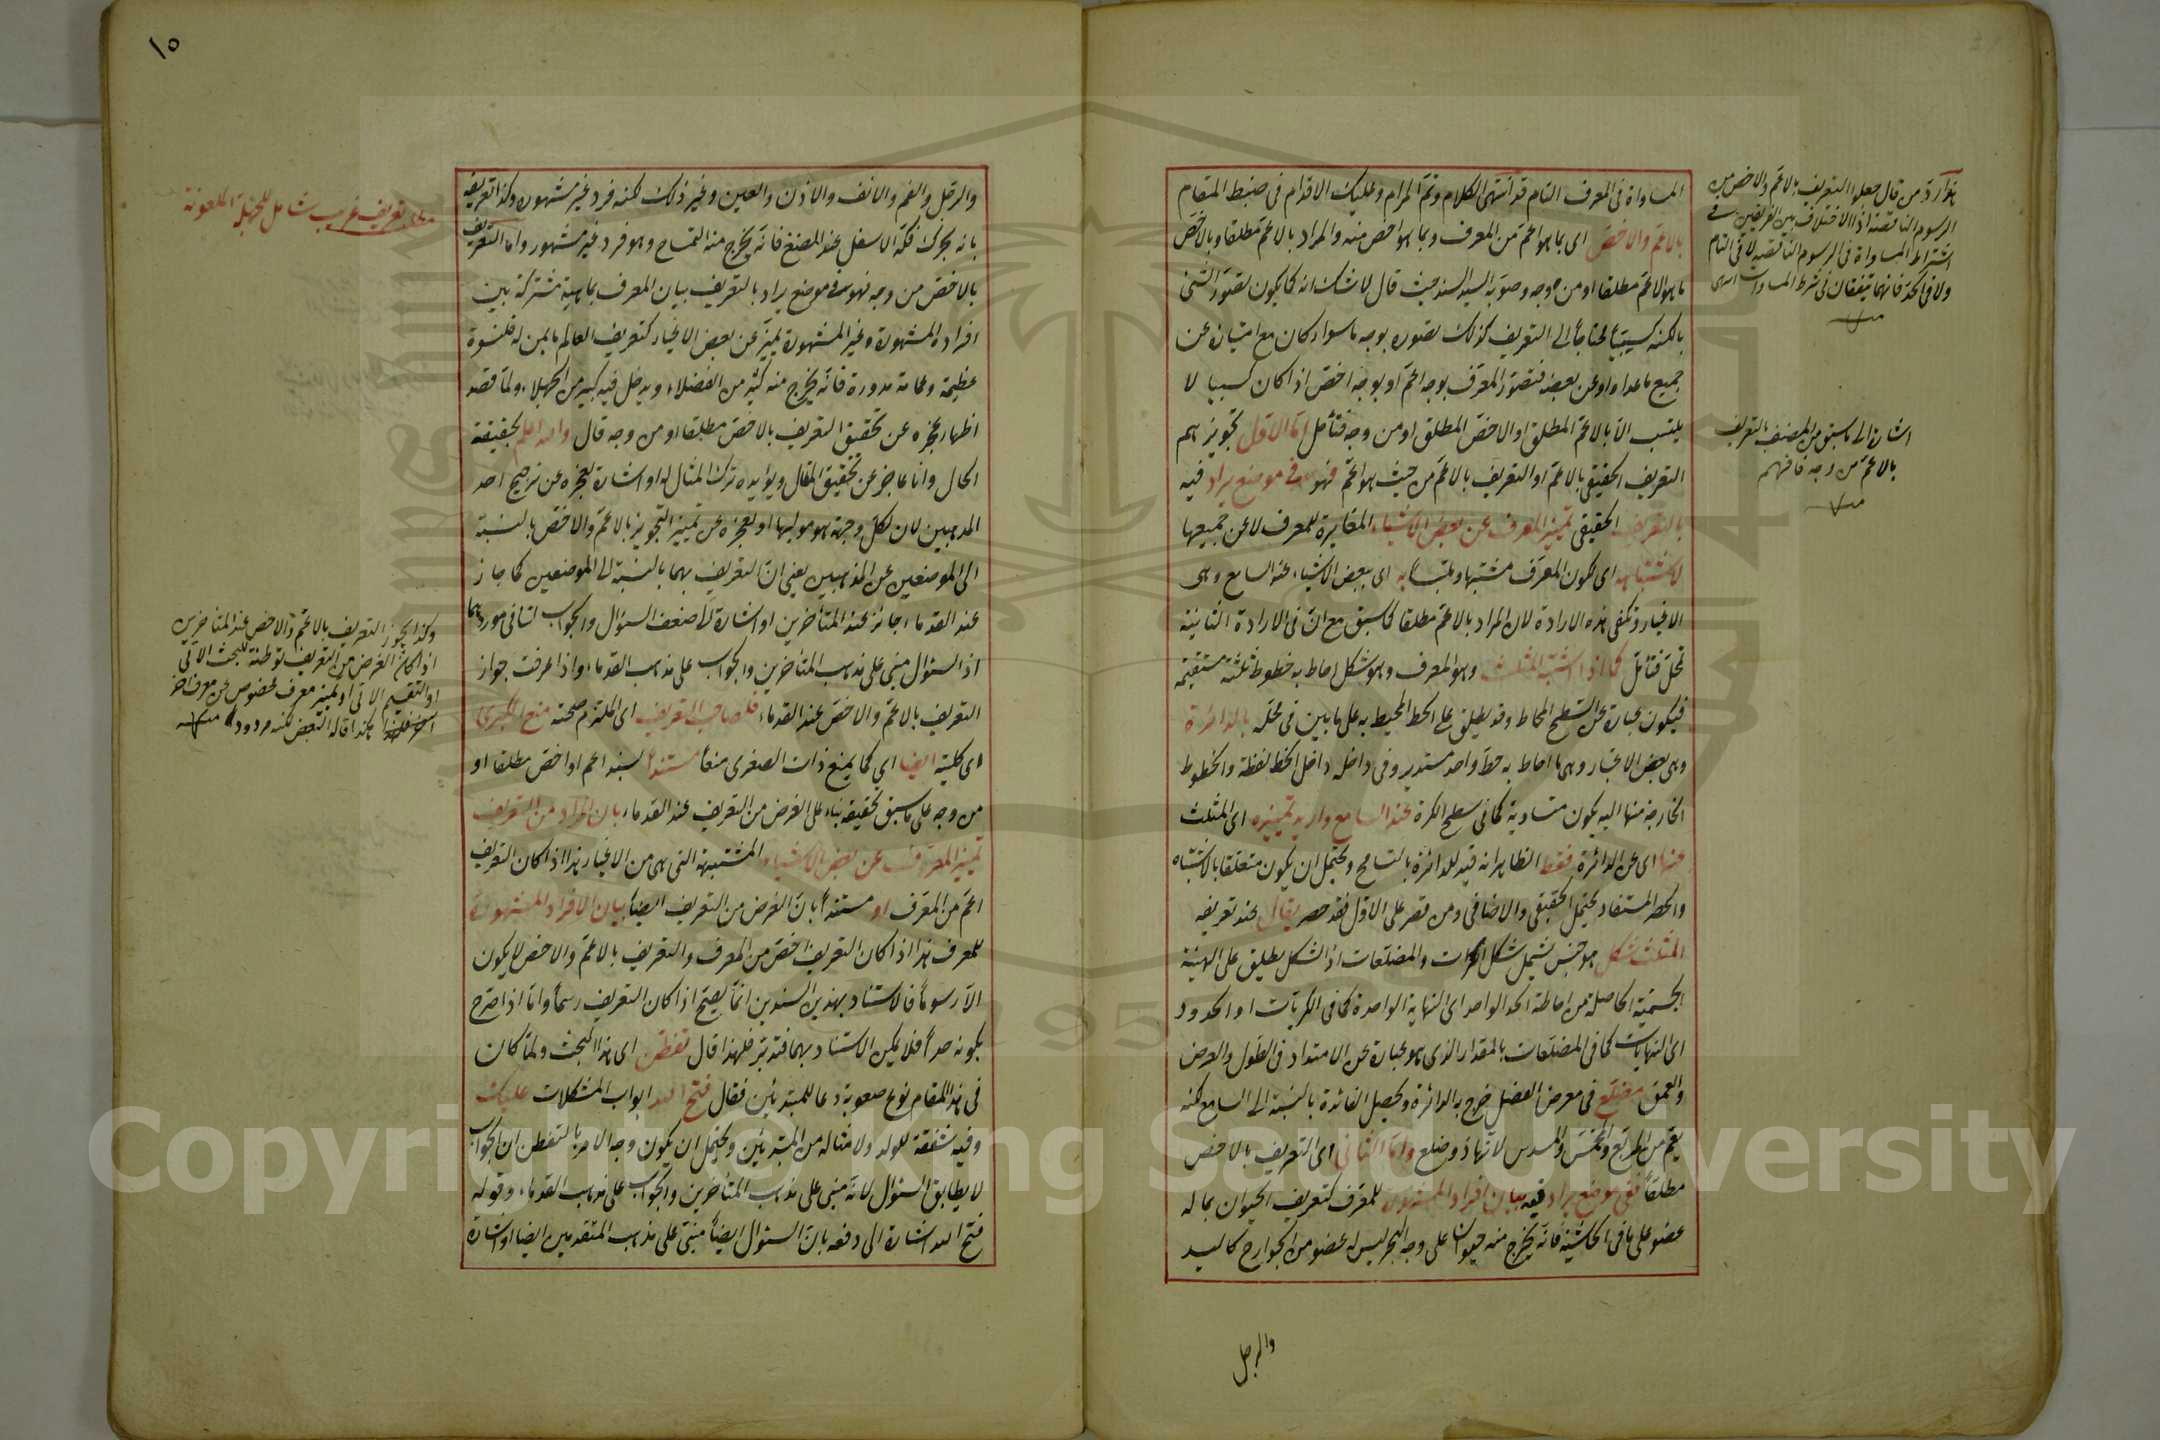 المساواة فى المعرف التام قد انتهى الكلام وتم المرام وعليك الاقدام فى ضبط المقام
بالاعم والاخص اى بما هو اعم من المعرف وبما هو اخص منه والمراد بالاعم مطلقا وبالاخص
ما هو لاعم مطلقا او من وجه وصوبه السيد السند حيث قال لا شك انه كما يكون تصور الشئ
بالكنه كسبيا محتاجا الى التعريف كذلك تصوره بوجه ما سواء كان مع امتيازه عن
جميع ما عداه او عن بعضه فتصور المعرف بوجه اعم او بوجه اخص اذا كان كسبيا لا
يكتسب الا بالاعم المطلق او الاخص المطلق او من وجه فتأمل اما الاول تجويزهم
التعريف الحقيقى بالاعم او التعريف بالاعم من حيث هو اعم فهو فى موضع يراد فيه
بالتعريف الحقيقى تمييز المعرف عن بعض الاشياء المغايرة للمعرف لا عن جميعها
لاشتباهه اى لكون المعرف مشتبها وملتبسا به اى ببعض الاشياء عند السامع وهى
الاغيار وتكفى هذه الارادة لان المراد بالاعم مطلقا كما سبق مع ان فى الارادة الثانية
تمحل فتأمل كما اذا اشتبه المثلث وهو المعرف وهو شكل احاط به خطوط ثلثة مستقيمة
فيكون عبارة عن السطح المحاط وقد يطلق على الخط المحيط به على ما بين فى محله بالدائرة
وهى بعض الاغيار وهى ما احاط به خط واحد مستدير وفى داخله داخل الخط نقطة والخطوط
الخارجة منها اليه يكون متساوية كما فى سطح الكرة عند السامع واريد تمييزه اى المثلث
عنها اى عن الدائرة فقط الظاهر انه قيد للدائرة بالتسامح ويحتمل ان يكون متعلقا بالاشتباه
والحصر المستفاد يحتمل الحقيقى والاضافى ومن قصر على الاول فقد حصر يقال عند تعريفه
المثلث شكل هو جنس يشمل شكل الكرات والمضلعات اذ الشكل يطلق على الهيئة
الجسمية الحاصلة من احاطة الحد الواحد اى النهاية الواحدة كما فى الكريات او الحدود
اى النهايات كما فى المضلعات بالمقدار الذى هو عبارة عن الامتداد فى الطول والعرض
والعمق مضلع فى معرض الفصل خرج به الدائرة ويحصل الفائدة بالنسبة الى السامع لكنه
يعم من المربع والمخمس والمسدس لانها ذو ضلع واما الثانى اى التعريف بالاخص
مطلقا ففى موضع يراد فيه بيان افراد المشهورة للمعرف كتعريف الحيوان بما له
عضو على ما فى الحاشية فانه يخرج منه حيوان على وجه البحر ليس له عضو من الجوارح كاليد
والرجل
هذا رد من قال جعلوا التعريف بالاعم والاخص من
الرسوم الناقصة اذ الاختلاف بين الفريقين فى
اشتراط المساواة فى الرسوم الناقصة لا فى التام
ولا فى الحد فانهما متفقان فى شرط المساواة انتهى
منه
اشارة الى ما سبق من المصنف بالتعريف
بالاعم من وجه فافهم
منه
١٠
والرجل والفم والانف والاذن والعين وغير ذلك لكنه فرد غير مشهور وكذا تعريفه
بانه يحرك فكه الاسفل عند المضغ فانه يخرج منه التمساح وهو فرد غير مشهور واما التعريف
بالاخص من وجه فهو فى موضع يراد بالتعريف بيان المعرف بماهية مشتركة بين
افراده المشهورة وغير المشهورة تميز عن بعض الاغيار كتعريف العالم بمن له قلنسوة
عظيمة وعمامة مدورة فانه يخرج منه كثير من الفضلاء ويدخل فيه كثير من الجهلاء ولما قصد
اظهار عجزه عن تحقيق التعريف بالاخص مطلقا او من وجه قال والله اعلم بحقيقة
الحال وانا عاجز عن تحقيق المقال ويؤيده ترك المثال له او اشارة لعجزه عن ترجيح احد
المذهبين لان لكل وجهة هو موليها او لعجزه عن تمييز التجويز بالاعم والاخص بالنسبة
الى الموضعين عن المذهبين يعنى ان التعريف بهما بالنسبة الى الموضعين كما جاز
عند القدماء جائز عند المتأخرين او اشارة الى ضعف السؤال والجواب لتنافى موردهما
اذ السؤال مبنى على مذهب المتأخرين والجواب على مذهب القدماء واذا عرفت جواز
التعريف بالاعم والاخص عند القدماء فلصاحب التعريف اى الملتزم صحته منع الكبرى
اى كلية ايضا اى كما يمنع ذات الصغرى منعا مستندا لسند اعم او اخص مطلقا او
من وجه على ما سبق تحقيقه بناء على الغرض من التعريف عند القدماء بان المراد من التعريف
تمييز المعرف عن بعض الاشياء المشتبهة التى هى من الاغيار هذا اذا كان التعريف
اعم من المعرف او مستندا بان الغرض من التعريف ايضا بيان الافراد المشهورة
للمعرف هذا اذا كان التعريف اخص من المعرف والتعريف بالاعم والاخص لا يكون
الا رسوما فالاستناد بهذين السندين انما يصح اذا كان التعريف رسما واما اذا صرح
بكونه حدا فلا يمكن الاستناد بهما فتدبر فلهذا قال تفطن اى هذا البحث ولما كان
فى هذا المقام نوع صعوبة دعا للمبتدئين فقال فتح الله ابواب المشكلات عليك
وفيه شفقة للولد ولامثاله من المبتدئين ويحتمل ان يكون وجه الامر بالتفطن ان الجواب
لا يطابق السؤال لانه مبنى على مذهب المتأخرين والجواب على مذهب القدماء وقوله
فتح الله اشارة الى دفعه بان السؤال ايضا مبنى على مذهب المتقدمين ايضا او اشارة
تعريف غريب شامل للجهلة الملعونة
وكذا يجوز التعريف بالاعم والاخص عند المتأخرين
اذا كان الغرض من التعريف توطئة للبحث الآتى
او التقسيم الآتى او تمييز معرف مخصوص عن معرف
آخر هكذا قاله البعض لكنه مردود منه
Copyright © King Saud University
1957